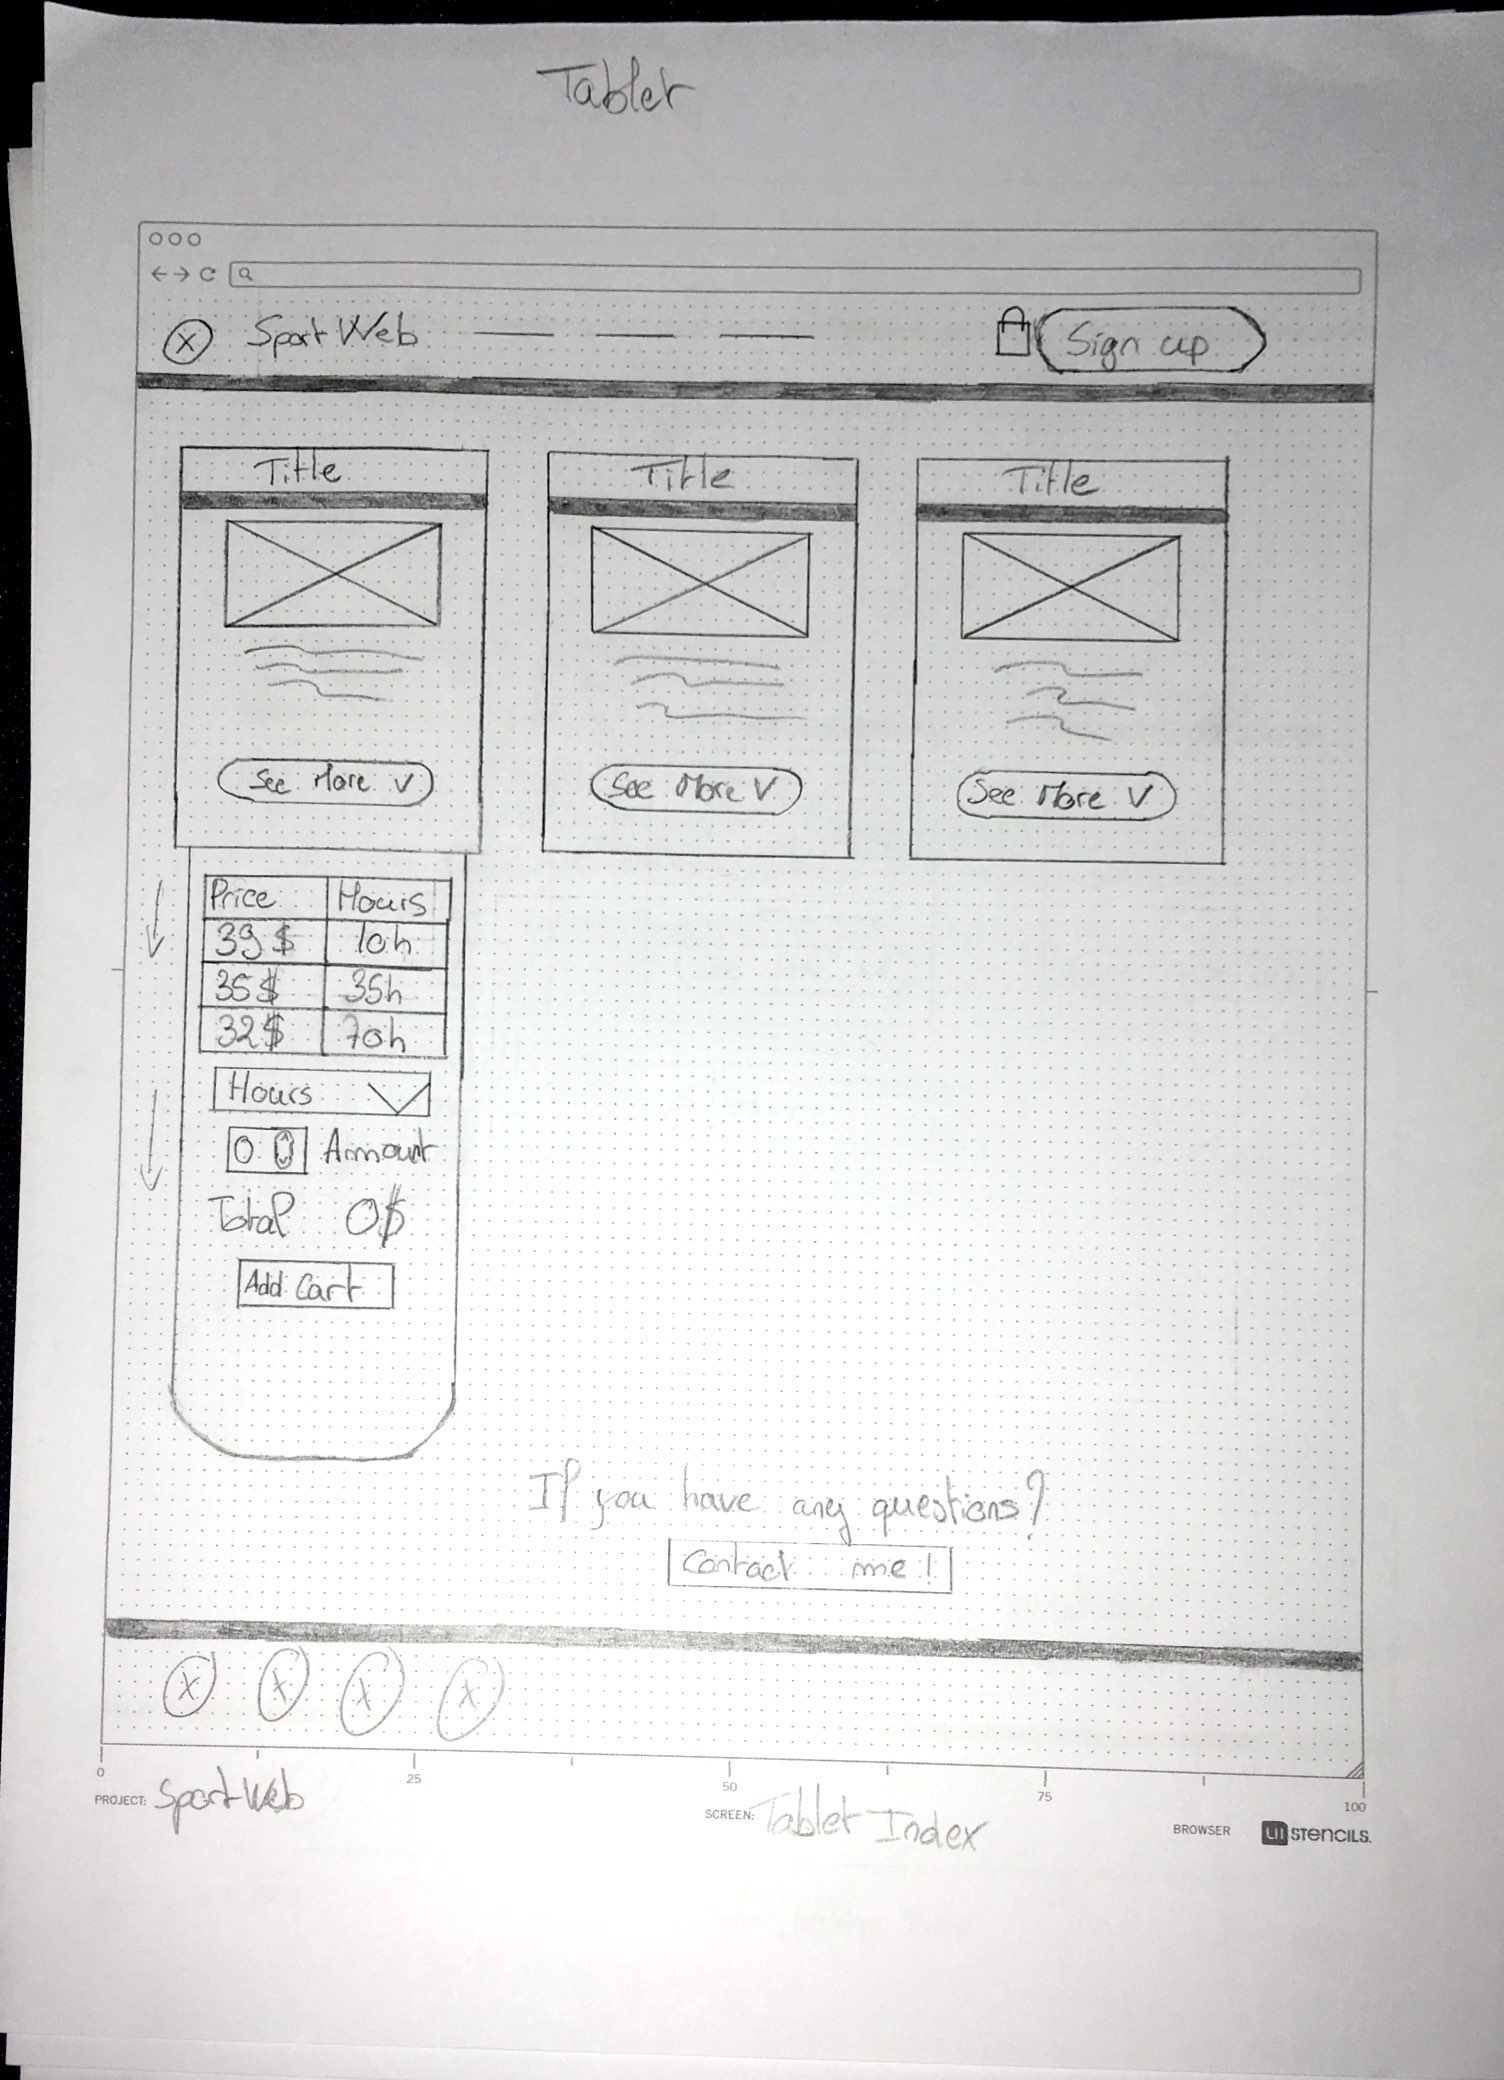 Tablet
Sport Web
Sign up
Title
Title
Title
See More V
See More V
See More V
Price Hours
39$ 10h
35$ 35h
32$ 70h
Hours
0 Amount
Total 0$
Add Cart
If you have any questions?
Contact me!
0 25 50 75 100
PROJECT: Sport Web
SCREEN: Tablet Index
BROWSER
UI STENCILS.